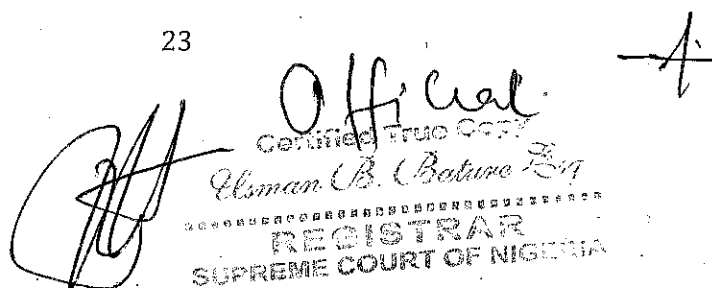 23
Official
Certified True Copy
Usman B. Bature Esq
REGISTRAR
SUPREME COURT OF NIGERIA